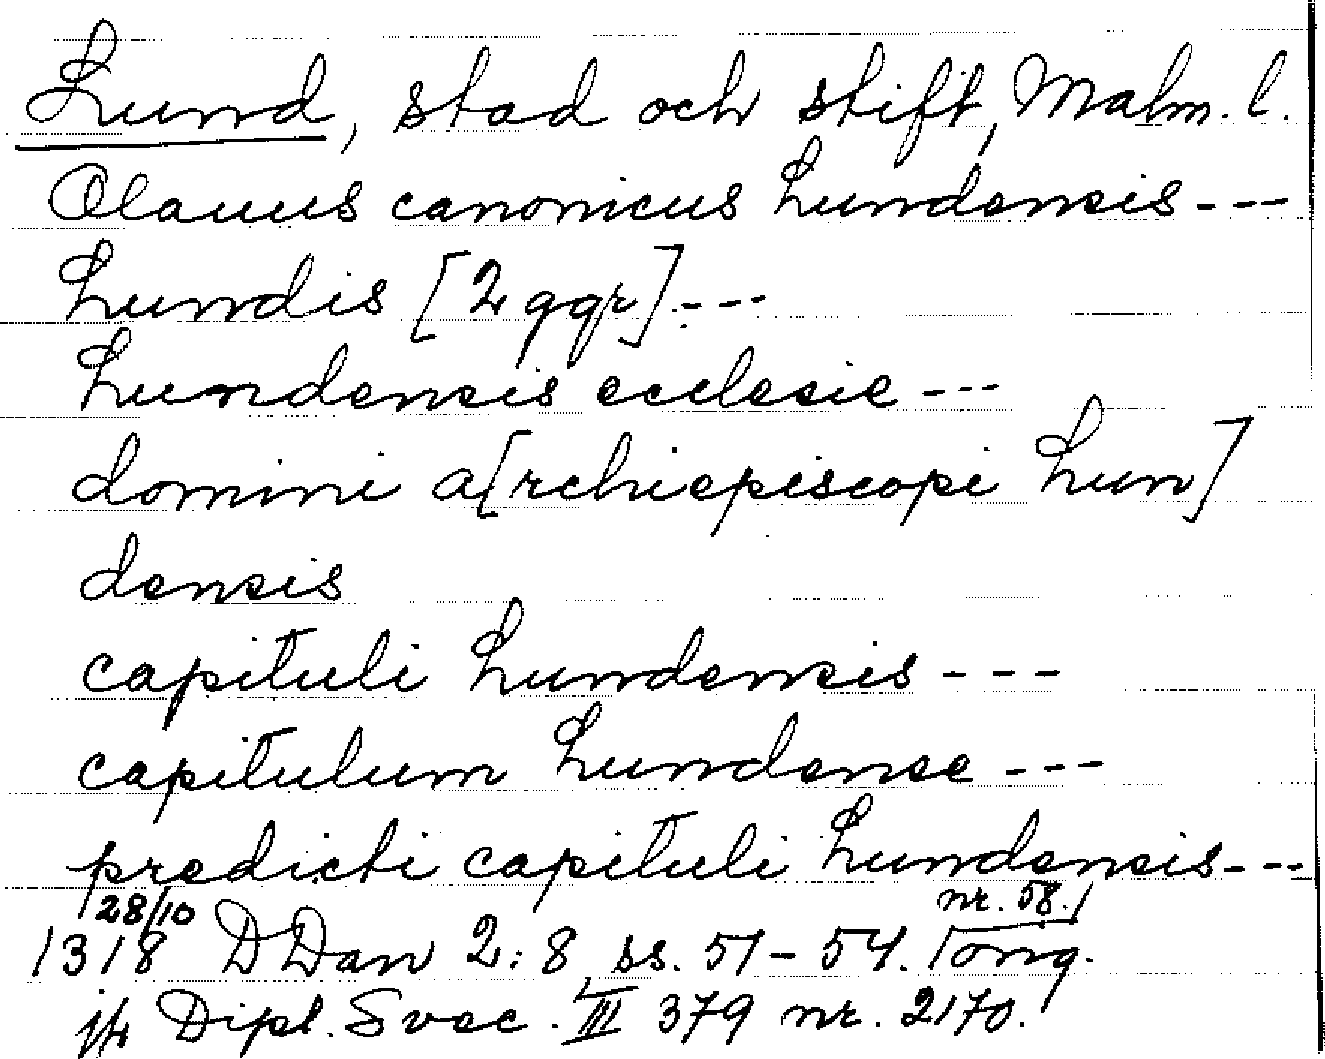 Lund, stad och stift, Malm. l.
Olauus canonicus Lundensis---
Lundis [2 ggr]---
Lundensis ecclesie---
domini a[rchiepiscopi Lun]
densis
capituli Lundensis---
capitulum Lundense---
predicti capituli Lundensis---
28/10 nr. 58.
1318 DDan 2:8, ss. 51-54. orig.
jfr Dipl. Svec. III 379 nr. 2170.